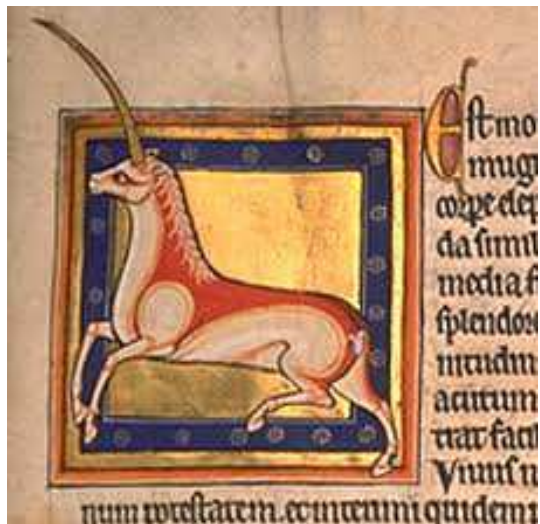 Est mo
mugi
corpe elep
da simil
media f
splendore
nitudin
acutum
ciat facil
Viuus n
num potestatem. et interimi quidem